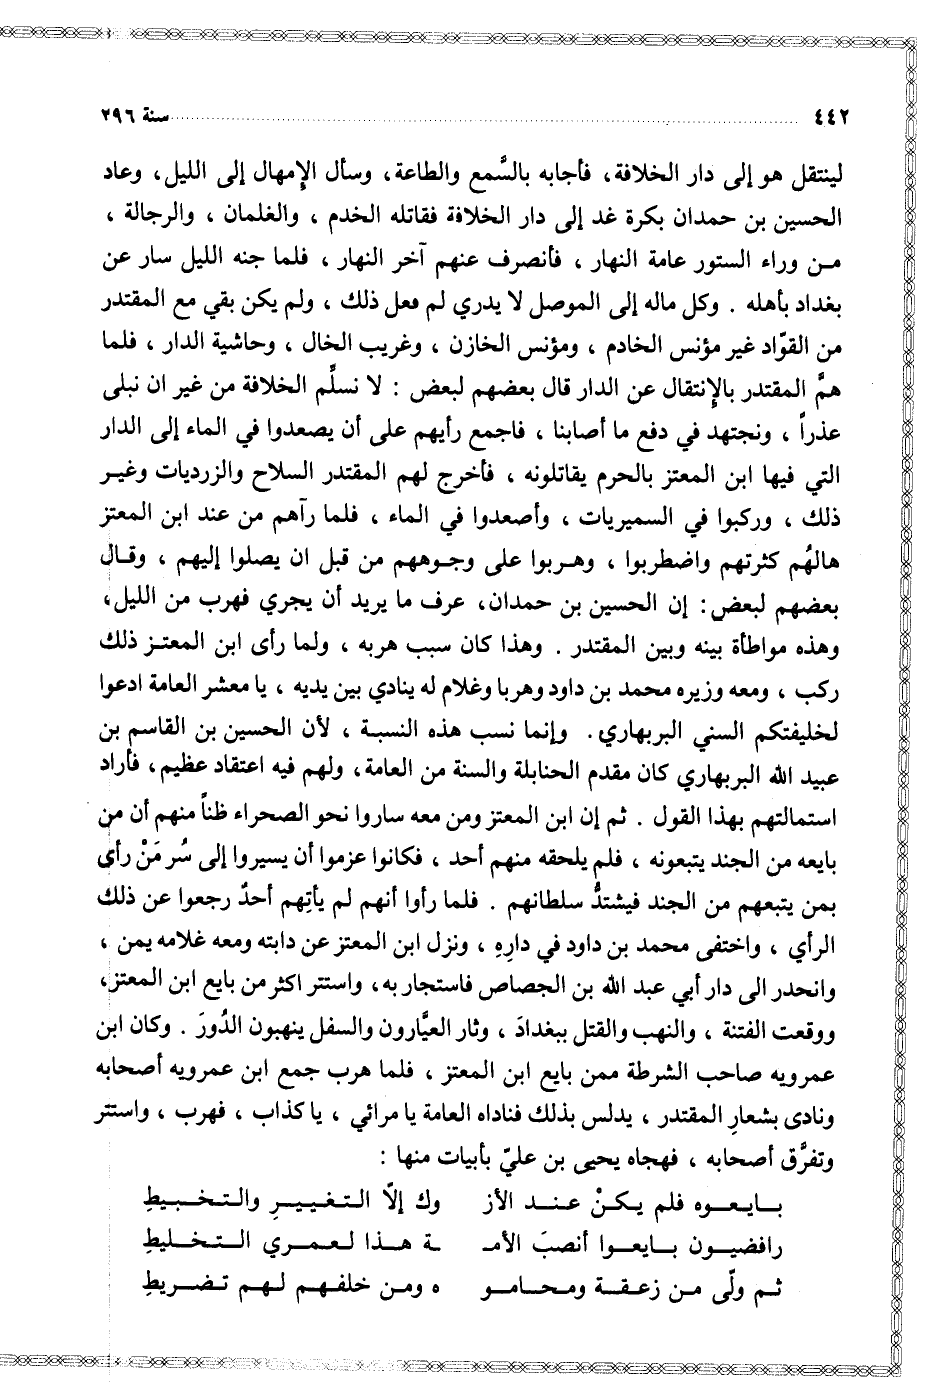 ٤٤٢ سنة ٢٩٦
لينتقل هو إلى دار الخلافة، فأجابه بالسَّمع والطاعة، وسأل الإمهال إلى الليل، وعاد
الحسين بن حمدان بكرة غد إلى دار الخلافة فقاتله الخدم ، والغلمان ، والرجالة ،
من وراء الستور عامة النهار ، فأنصرف عنهم آخر النهار ، فلما جنه الليل سار عن
بغداد بأهله . وكل ماله إلى الموصل لا يدري لم فعل ذلك ، ولم يكن بقي مع المقتدر
من القوّاد غير مؤنس الخادم ، ومؤنس الخازن ، وغريب الخال ، وحاشية الدار ، فلما
همَّ المقتدر بالإنتقال عن الدار قال بعضهم لبعض : لا نسلِّم الخلافة من غير ان نبلى
عذراً ، ونجتهد في دفع ما أصابنا ، فاجمع رأيهم على أن يصعدوا في الماء إلى الدار
التي فيها ابن المعتز بالحرم يقاتلونه ، فأخرج لهم المقتدر السلاح والزرديات وغير
ذلك ، وركبوا في السميريات ، وأصعدوا في الماء ، فلما رآهم من عند ابن المعتز
هالهُم كثرتهم واضطربوا ، وهربوا على وجوههم من قبل ان يصلوا إليهم ، وقال
بعضهم لبعض : إن الحسين بن حمدان، عرف ما يريد أن يجري فهرب من الليل،
وهذه مواطأة بينه وبين المقتدر . وهذا كان سبب هربه ، ولما رأى ابن المعتز ذلك
ركب ، ومعه وزيره محمد بن داود وهربا وغلام له ينادي بين يديه ، يا معشر العامة ادعوا
لخليفتكم السني البربهاري . وإنما نسب هذه النسبة ، لأن الحسين بن القاسم بن
عبيد الله البربهاري كان مقدم الحنابلة والسنة من العامة، ولهم فيه اعتقاد عظيم، فأراد
استمالتهم بهذا القول . ثم إن ابن المعتز ومن معه ساروا نحو الصحراء ظناً منهم أن من
بايعه من الجند يتبعونه ، فلم يلحقه منهم أحد ، فكانوا عزموا أن يسيروا إلى سُر مَنْ رأى
بمن يتبعهم من الجند فيشتدُّ سلطانهم . فلما رأوا أنهم لم يأتِهم أحدٌ رجعوا عن ذلك
الرأي ، واختفى محمد بن داود في دارِهِ ، ونزل ابن المعتز عن دابته ومعه غلامه يمن ،
وانحدر الى دار أبي عبد الله بن الجصاص فاستجار به، واستتر اكثر من بايع ابن المعتز،
ووقعت الفتنة ، والنهب والقتل ببغدادَ ، وثار العيَّارون والسفل ينهبون الدُورَ . وكان ابن
عمرويه صاحب الشرطة ممن بايع ابن المعتز ، فلما هرب جمع ابن عمرويه أصحابه
ونادى بشعارِ المقتدر ، يدلس بذلك فناداه العامة يا مرائي ، يا كذاب ، فهرب ، واستتر
وتفرَّق أصحابه ، فهجاه يحيى بن عليّ بأبيات منها :
بايعوه فلم يكنْ عند الأز وك إلاّ التغييرِ والتخبيطِ
رافضيون بايعوا أنصبَ الأمـ ـة هذا لعمري التخليطِ
ثم ولّى من زعقة ومحامو ه ومن خلفهم لهم تضريطِ